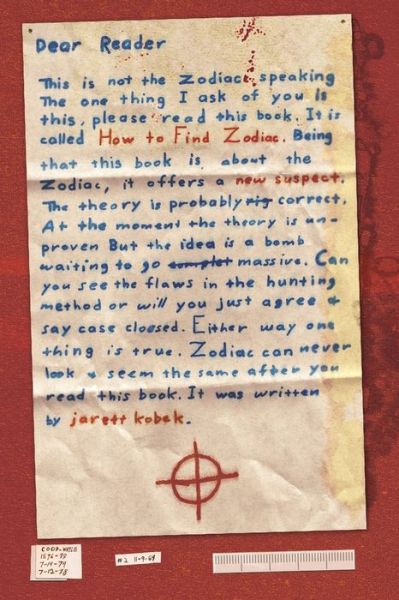 Dear Reader
This is not the Zodiac speaking
The one thing I ask of you is
this, please read this book. It is
called How to Find Zodiac. Being
that this book is about the
Zodiac, it offers a new suspect.
The theory is probably rig correct.
At the moment the theory is un-
proven But the idea is a bomb
waiting to go complet massive. Can
you see the flaws in the hunting
method or will you just agree &
say case cloesed. Either way one
thing is true. Zodiac can never
look & seem the same after you
read this book. It was written
by jarett kobek.
#2 11-9-69